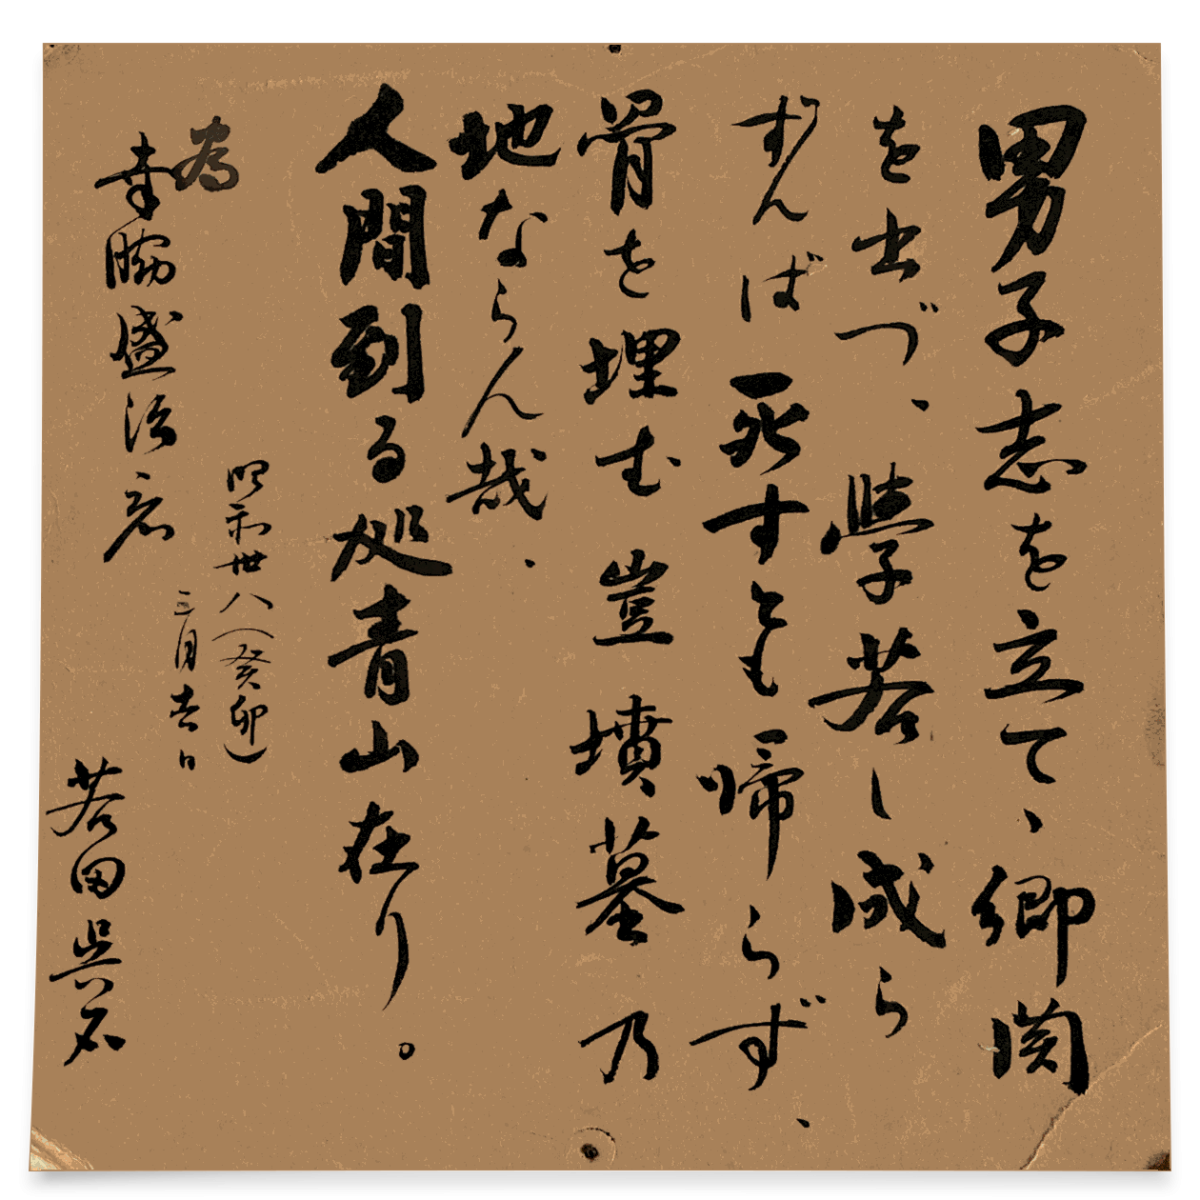 男子志を立て、郷関
を出づ、學若し成ら
ずんば死すとも啼らず、
骨を埋む豈墳墓乃
地ならん哉、
人間到る処青山在り。
為
幸脇盛治君
昭和卅八(癸卯)
三月吉日
若田呉石